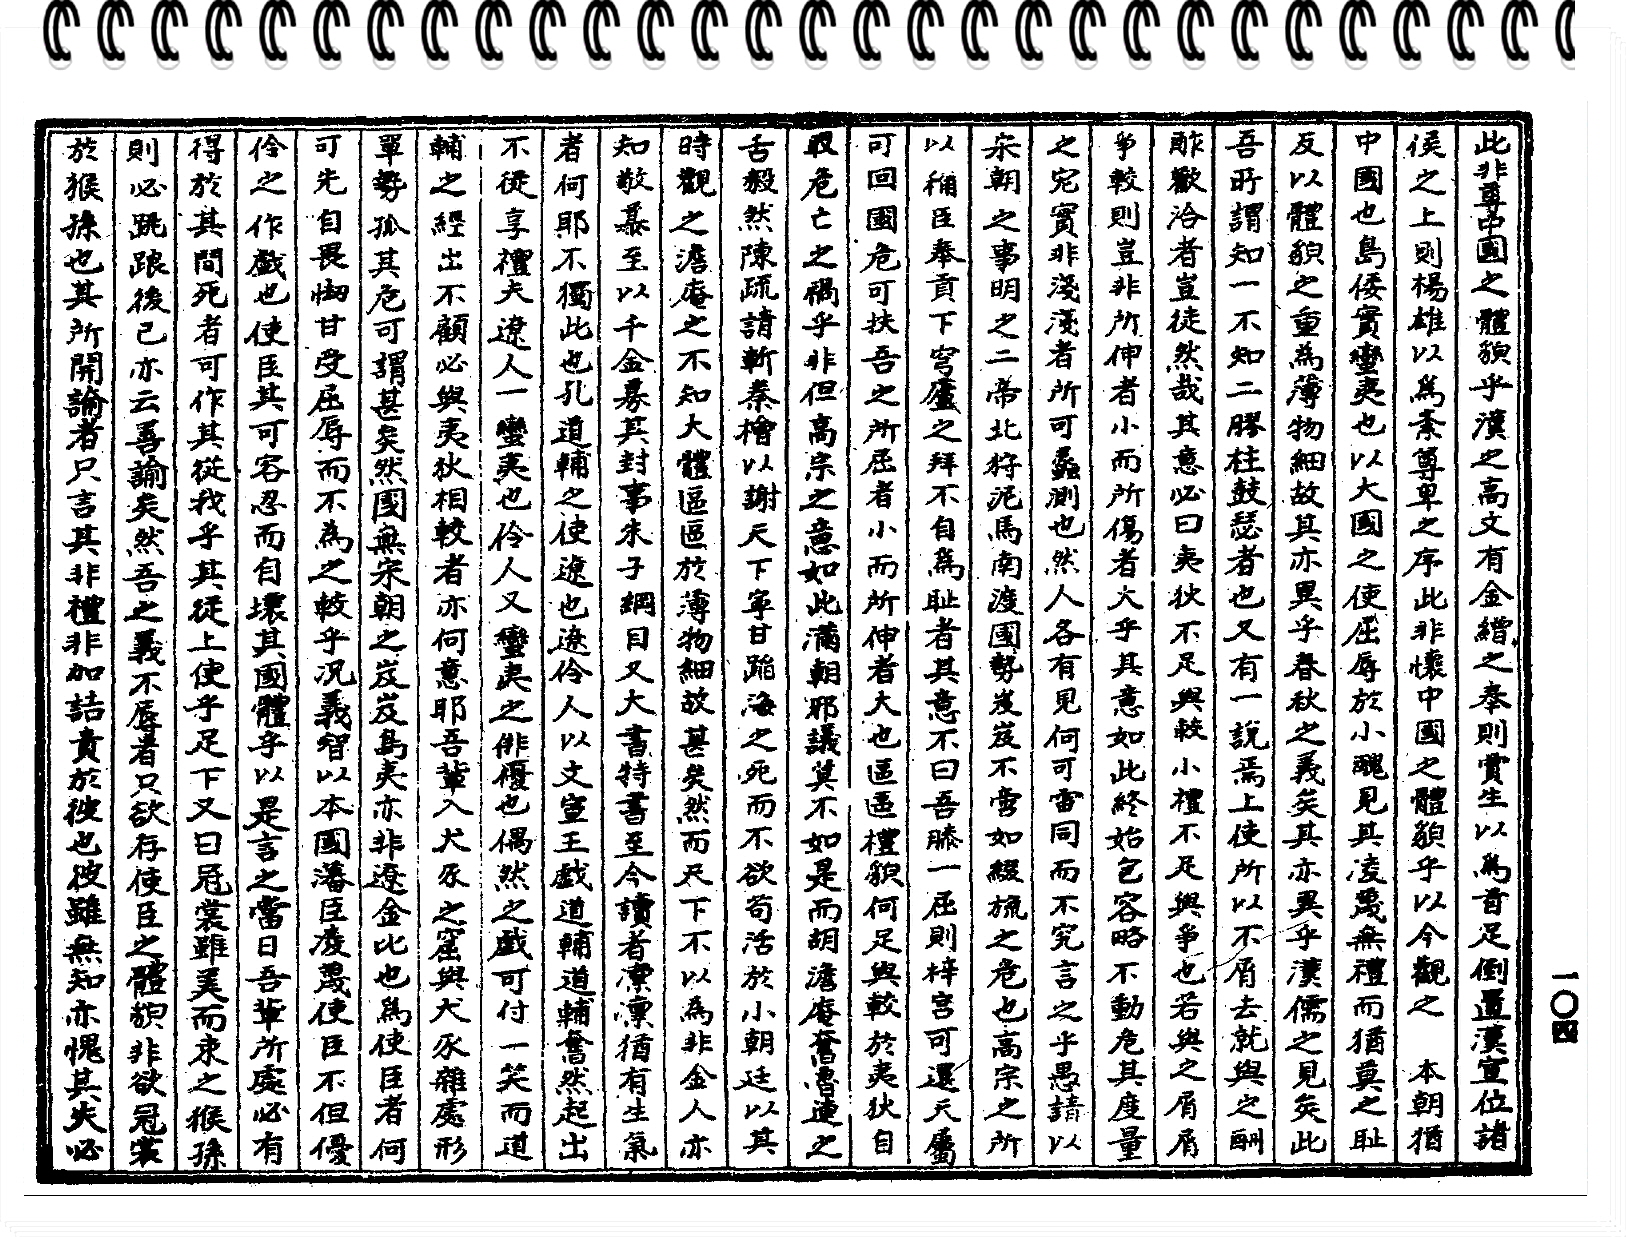 此非尊中國之體貌乎漢之高文有金繒之奉則賈生以爲首足倒置漢宣位諸
侯之上則楊雄以爲紊尊卑之序此非懷中國之體貌乎以今觀之 本朝猶
中國也島倭實蠻夷也以大國之使屈辱於小醜見其凌蔑無禮而猶莫之耻
反以體貌之重爲薄物細故其亦異乎春秋之義矣其亦異乎漢儒之見矣此
吾所謂知一不知二膠柱鼓瑟者也又有一說焉上使所以不屑去就與之酬
酢歡洽者豈徒然哉其意必曰夷狄不足與較小禮不足與爭也若與之屑屑
爭較則豈非所伸者小而所傷者大乎其意如此終始包容略不動危其度量
之宏實非淺淺者所可蠡測也然人各有見何可雷同而不究言之乎愚請以
宋朝之事明之二帝北狩泥馬南渡國勢岌岌不啻如綴旒之危也高宗之所
以稱臣奉貢下穹廬之拜不自爲耻者其意不曰吾膝一屈則梓宮可還天屬
可回國危可扶吾之所屈者小而所伸者大也區區禮貌何足與較於夷狄自
取危亡之禍乎非但高宗之意如此滿朝邪議莫不如是而胡澹庵奮魯連之
舌毅然陳疏請斬秦檜以謝天下寧甘蹈海之死而不欲苟活於小朝廷以其
時觀之澹庵之不知大體區區於薄物細故甚矣然而天下不以爲非金人亦
知敬慕至以千金募其封事朱子綱目又大書特書至今讀者凜凜猶有生氣
者何耶不獨此也孔道輔之使遼也遼伶人以文宣王戲道輔道輔奮然起出
不從享禮夫遼人一蠻夷也伶人又蠻夷之俳優也偶然之戲可付一笑而道
輔之經出不顧必與夷狄相較者亦何意耶吾輩入犬豕之窟與犬豕雜處形
單勢孤其危可謂甚矣然國無宋朝之岌岌島夷亦非遼金比也爲使臣者何
可先自畏㥘甘受屈辱而不爲之較乎況義智以本國藩臣凌蔑使臣不但優
伶之作戲也使臣其可容忍而自壞其國體乎以是言之當日吾輩所處必有
得於其間死者可作其從我乎其從上使乎足下又曰冠裳雖美而束之猴孫
則必跳踉後已亦云善諭矣然吾之義不辱者只欲存使臣之體貌非欲冠裳
於猴孫也其所開諭者只言其非禮非加詰責於彼也彼雖無知亦愧其失必
一〇四